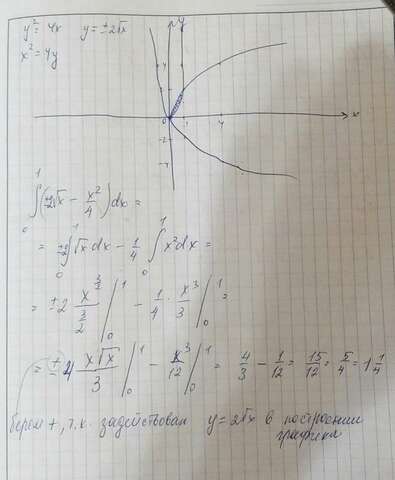 y² = 4x y = ±2√x
x² = 4y
y
x
0 1 4
4
2
-2
-4
∫₀¹ (±2√x − x²/4) dx =
= ±2 ∫₀¹ √x dx − 1/4 ∫₀¹ x² dx =
= ±2 x^(3/2)/(3/2) |₀¹ − 1/4 · x³/3 |₀¹ =
= ± 4 x√x/3 |₀¹ − x³/12 |₀¹ = 4/3 − 1/12 = 15/12 = 5/4 = 1 1/4
берем +, т.к. задействован y = 2√x в построении
графика